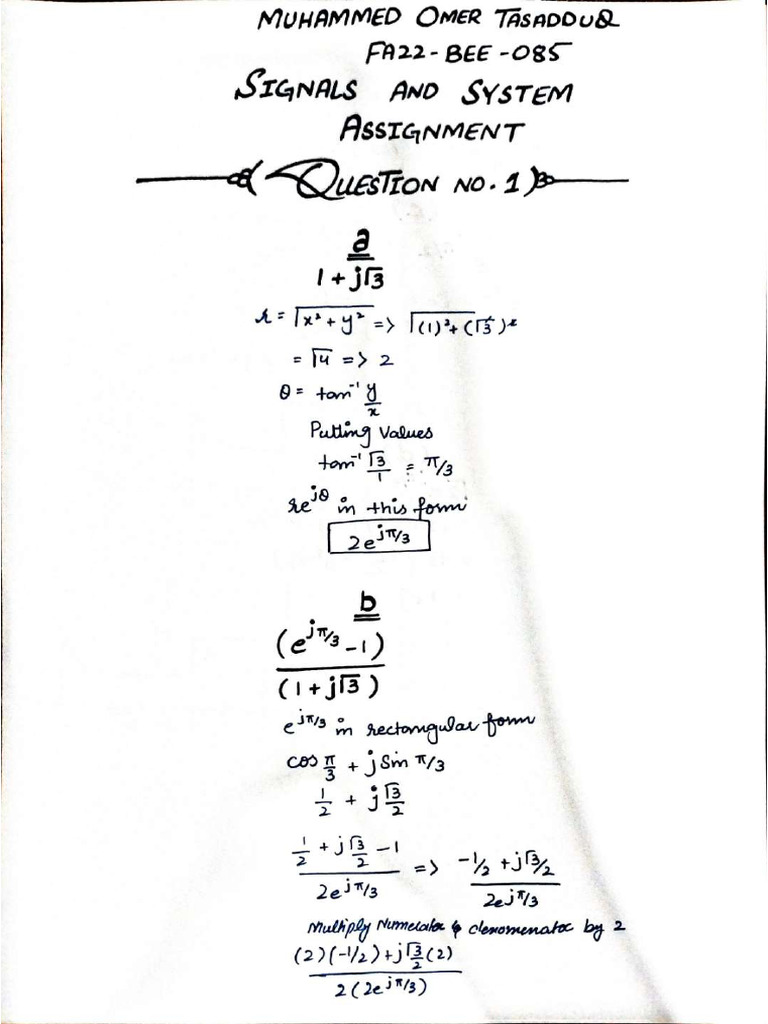 MUHAMMED OMER TASADDUQ
FA22-BEE-085
SIGNALS AND SYSTEM
ASSIGNMENT
QUESTION NO. 1
a
1 + j√3
r = √x² + y² => √(1)² + (√3)²
= √4 => 2
θ = tan⁻¹ y/x
Putting Values
tan⁻¹ √3/1 = π/3
re^jθ in this form
2e^jπ/3
b
(e^jπ/3 - 1)
(1 + j√3)
e^jπ/3 in rectangular form
cos π/3 + j Sin π/3
1/2 + j √3/2
1/2 + j√3/2 - 1 => -1/2 + j√3/2
2e^jπ/3 2e^jπ/3
Multiply Numerator & denomenator by 2
(2)(-1/2) + j√3/2 (2)
2(2e^jπ/3)